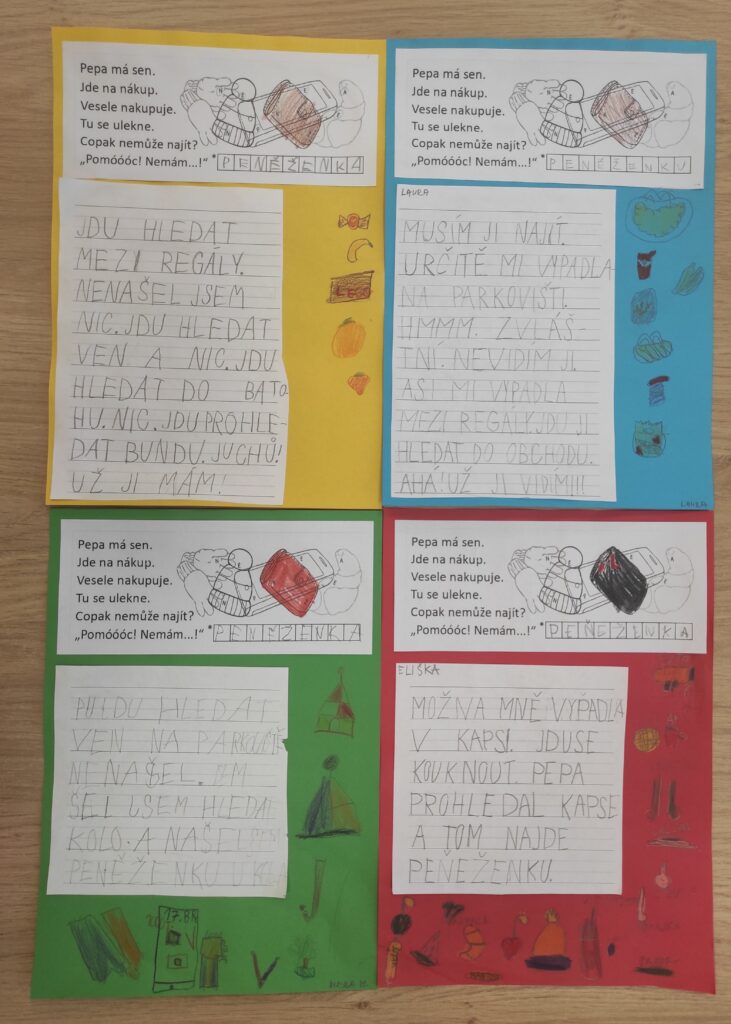 Pepa má sen.
Jde na nákup.
Vesele nakupuje.
Tu se ulekne.
Copak nemůže najít?
„Pomóóóc! Nemám...!“ * PENĚŽENKA
JDU HLEDAT
MEZI REGÁLY.
NENAŠEL JSEM
NIC. JDU HLEDAT
VEN A NIC. JDU
HLEDAT DO BATO
HU. NIC. JDU PROHLE-
DAT BUNDU. JUCHŮ!
UŽ JI MÁM!
LEGO
Pepa má sen.
Jde na nákup.
Vesele nakupuje.
Tu se ulekne.
Copak nemůže najít?
„Pomóóóc! Nemám...!“ * PENĚŽENKU
LAURA
MUSÍM JI NAJÍT.
URČITĚ MI VYPADLA
NA PARKOVIŠTI.
HMMM. ZVLÁŠ-
TNÍ. NEVIDÍM JI.
ASI MI VYPADLA
MEZI REGÁLY. JDU JI
HLEDAT DO OBCHODU.
AHÁ! UŽ JI VIDÍM!!!
LAURA
Pepa má sen.
Jde na nákup.
Vesele nakupuje.
Tu se ulekne.
Copak nemůže najít?
„Pomóóóc! Nemám...!“ * PENĚŽENKA
PUJDU HLEDAT
VEN NA PARKOVIŠTĚ
NENAŠEL. SEM
ŠEL JSEM HLEDAT
KOLO. A NAŠEL
PENĚŽENKU
Pepa má sen.
Jde na nákup.
Vesele nakupuje.
Tu se ulekne.
Copak nemůže najít?
„Pomóóóc! Nemám...!“ * PEŇEŽENKA
ELIŠKA
MOŽNA MNĚ VYPADLA
V KAPSI. JDUSE
KOUKNOUT. PEPA
PROHLEDAL KAPSE
A TOM NAJDE
PEŇEŽENKU.